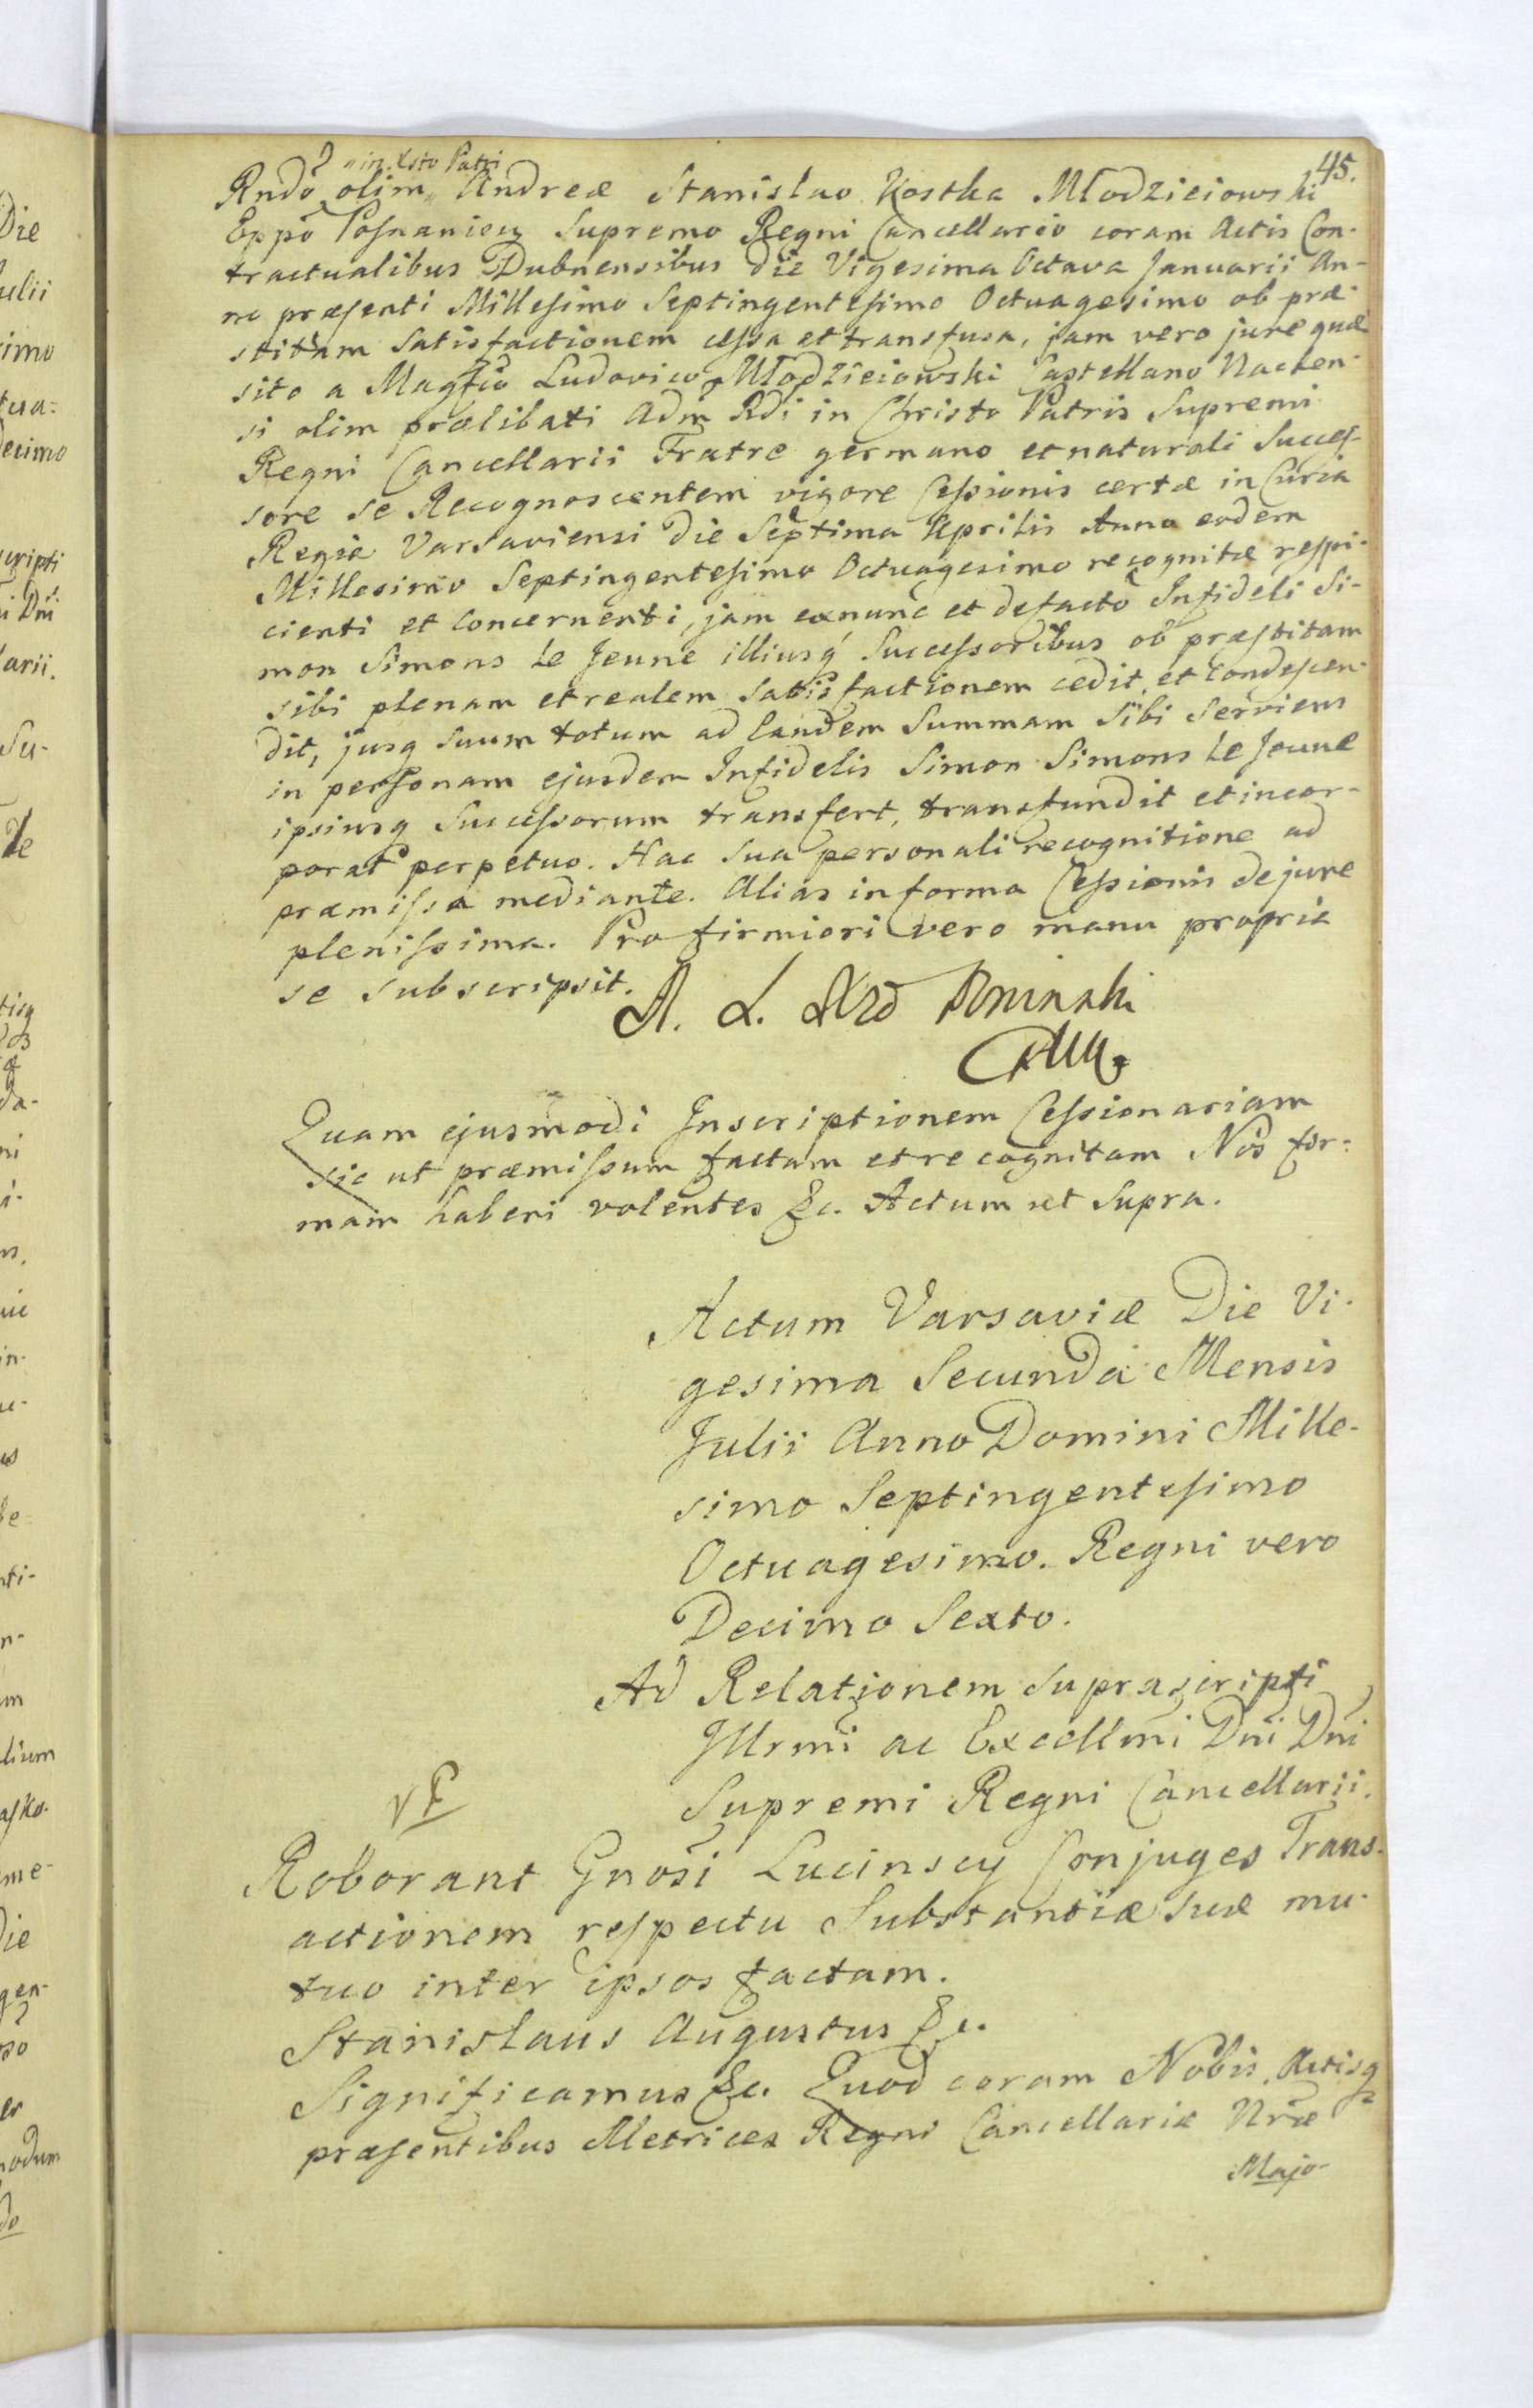 45.
in Xsto Patri
Rndo olim Andreæ Stanislao Kostka Młodzieiowski
Eppo Posnanien Supremo Regni Cancellario coram Actis Con-
tractualibus Dubnensibus die Vigesima Octava Januarii An-
no præsenti Millesimo Septingentesimo Octuagesimo ob præ-
stitam Satisfactionem cessa et transfusa, jam vero jure quæ
sito a Magfco Ludovico Młodzieiowski Castellano Naclen-
si olim prælibati Adm Rdi in Christo Patris Supremi
Regni Cancellarii Fratre germano et naturali Succes-
sore se Recognoscentem vigore Cessionis certæ in Curia
Regia Varsaviensi Die Septima Aprilis Anno eodem
Millesimo Septingentesimo Octuagesimo recognitæ respi-
cienti et concernenti, jam exnunc et defacto Infideli Si-
mon Simons le Jeune illiusq Successoribus ob præstitam
sibi plenam et realem Satisfactionem cedit et condescen-
dit, jusq suum totum ad eandem Summam Sibi Serviens
in personam ejusdem Infidelis Simon Simons le Jeune
ipsiusq Successorum transfert, transfundit et incor-
porat perpetuo. Hac sua personali recognitione ad
præmissa mediante. Alias in forma Cessionis de jure
plenissima. Pro firmiori vero manu propria
se subscripsit.
A. L. Xżd Poninski
Quam ejusmodi Inscriptionem Cessionariam
sic ut præmissum factam et recognitam Nos for-
mam haberi volentes &c. Actum ut Supra.
Actum Varsaviæ Die Vi-
gesima Secunda Mensis
Julii Anno Domini Mille-
simo Septingentesimo
Octuagesimo. Regni vero
Decimo Sexto.
Ad Relationem suprascripti
Illrmi ac Excellmi Dni Dni
Supremi Regni Cancellarii.
Roborant Gnosi Lucinscy Conjuges Trans-
actionem respectu Substantiæ suæ mu-
tuo inter ipsos factam.
Stanislaus Augustus &c.
Significamus &c. Quod coram Nobis, Actisq
præsentibus Metrices Regni Cancellariæ Nræ
Majo-